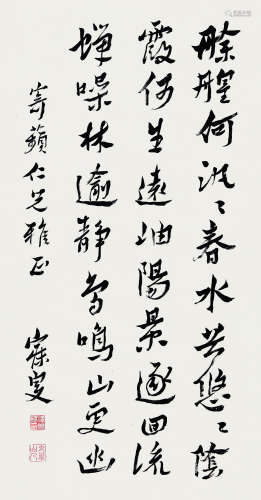 艅艎何汎〻春水共悠〻陰
霞生遠岫陽景逐迴流
蟬噪林逾靜鳥鳴山更幽
寄蘋仁兄雅正
寐叟